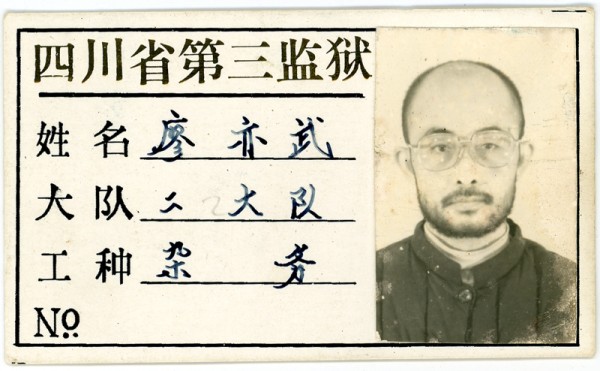 四川省第三监狱
姓名 廖亦武
大队 二大队
工种 杂务
No